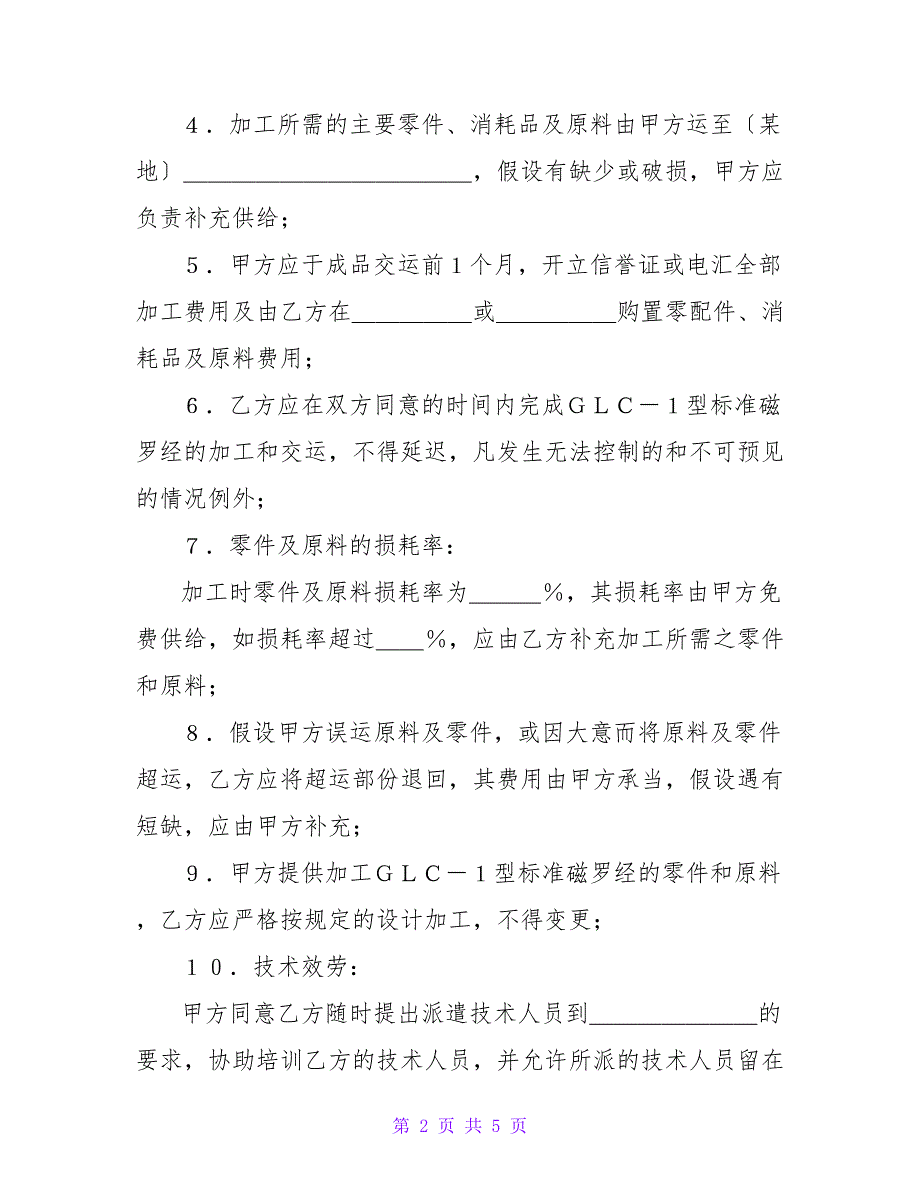 ４．加工所需的主要零件、消耗品及原料由甲方运至〔某
地〕________________________，假设有缺少或破损，甲方应
负责补充供给；
５．甲方应于成品交运前１个月，开立信誉证或电汇全部
加工费用及由乙方在__________或__________购置零配件、消
耗品及原料费用；
６．乙方应在双方同意的时间内完成ＧＬＣ－１型标准磁
罗经的加工和交运，不得延迟，凡发生无法控制的和不可预见
的情况例外；
７．零件及原料的损耗率：
加工时零件及原料损耗率为______％，其损耗率由甲方免
费供给，如损耗率超过____％，应由乙方补充加工所需之零件
和原料；
８．假设甲方误运原料及零件，或因大意而将原料及零件
超运，乙方应将超运部份退回，其费用由甲方承当，假设遇有
短缺，应由甲方补充；
９．甲方提供加工ＧＬＣ－１型标准磁罗经的零件和原料
，乙方应严格按规定的设计加工，不得变更；
１０．技术效劳：
甲方同意乙方随时提出派遣技术人员到______________的
要求，协助培训乙方的技术人员，并允许所派的技术人员留在
第 2 页 共 5 页